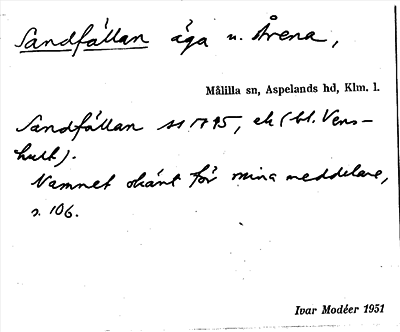 Sandfållan äga u. Årena,
Målilla sn, Aspelands hd, Klm. l.
Sandfållan 1795, ek (bl. Vens-
hult).
Namnet okänt för mina meddelare,
s. 106.
Ivar Modéer 1951